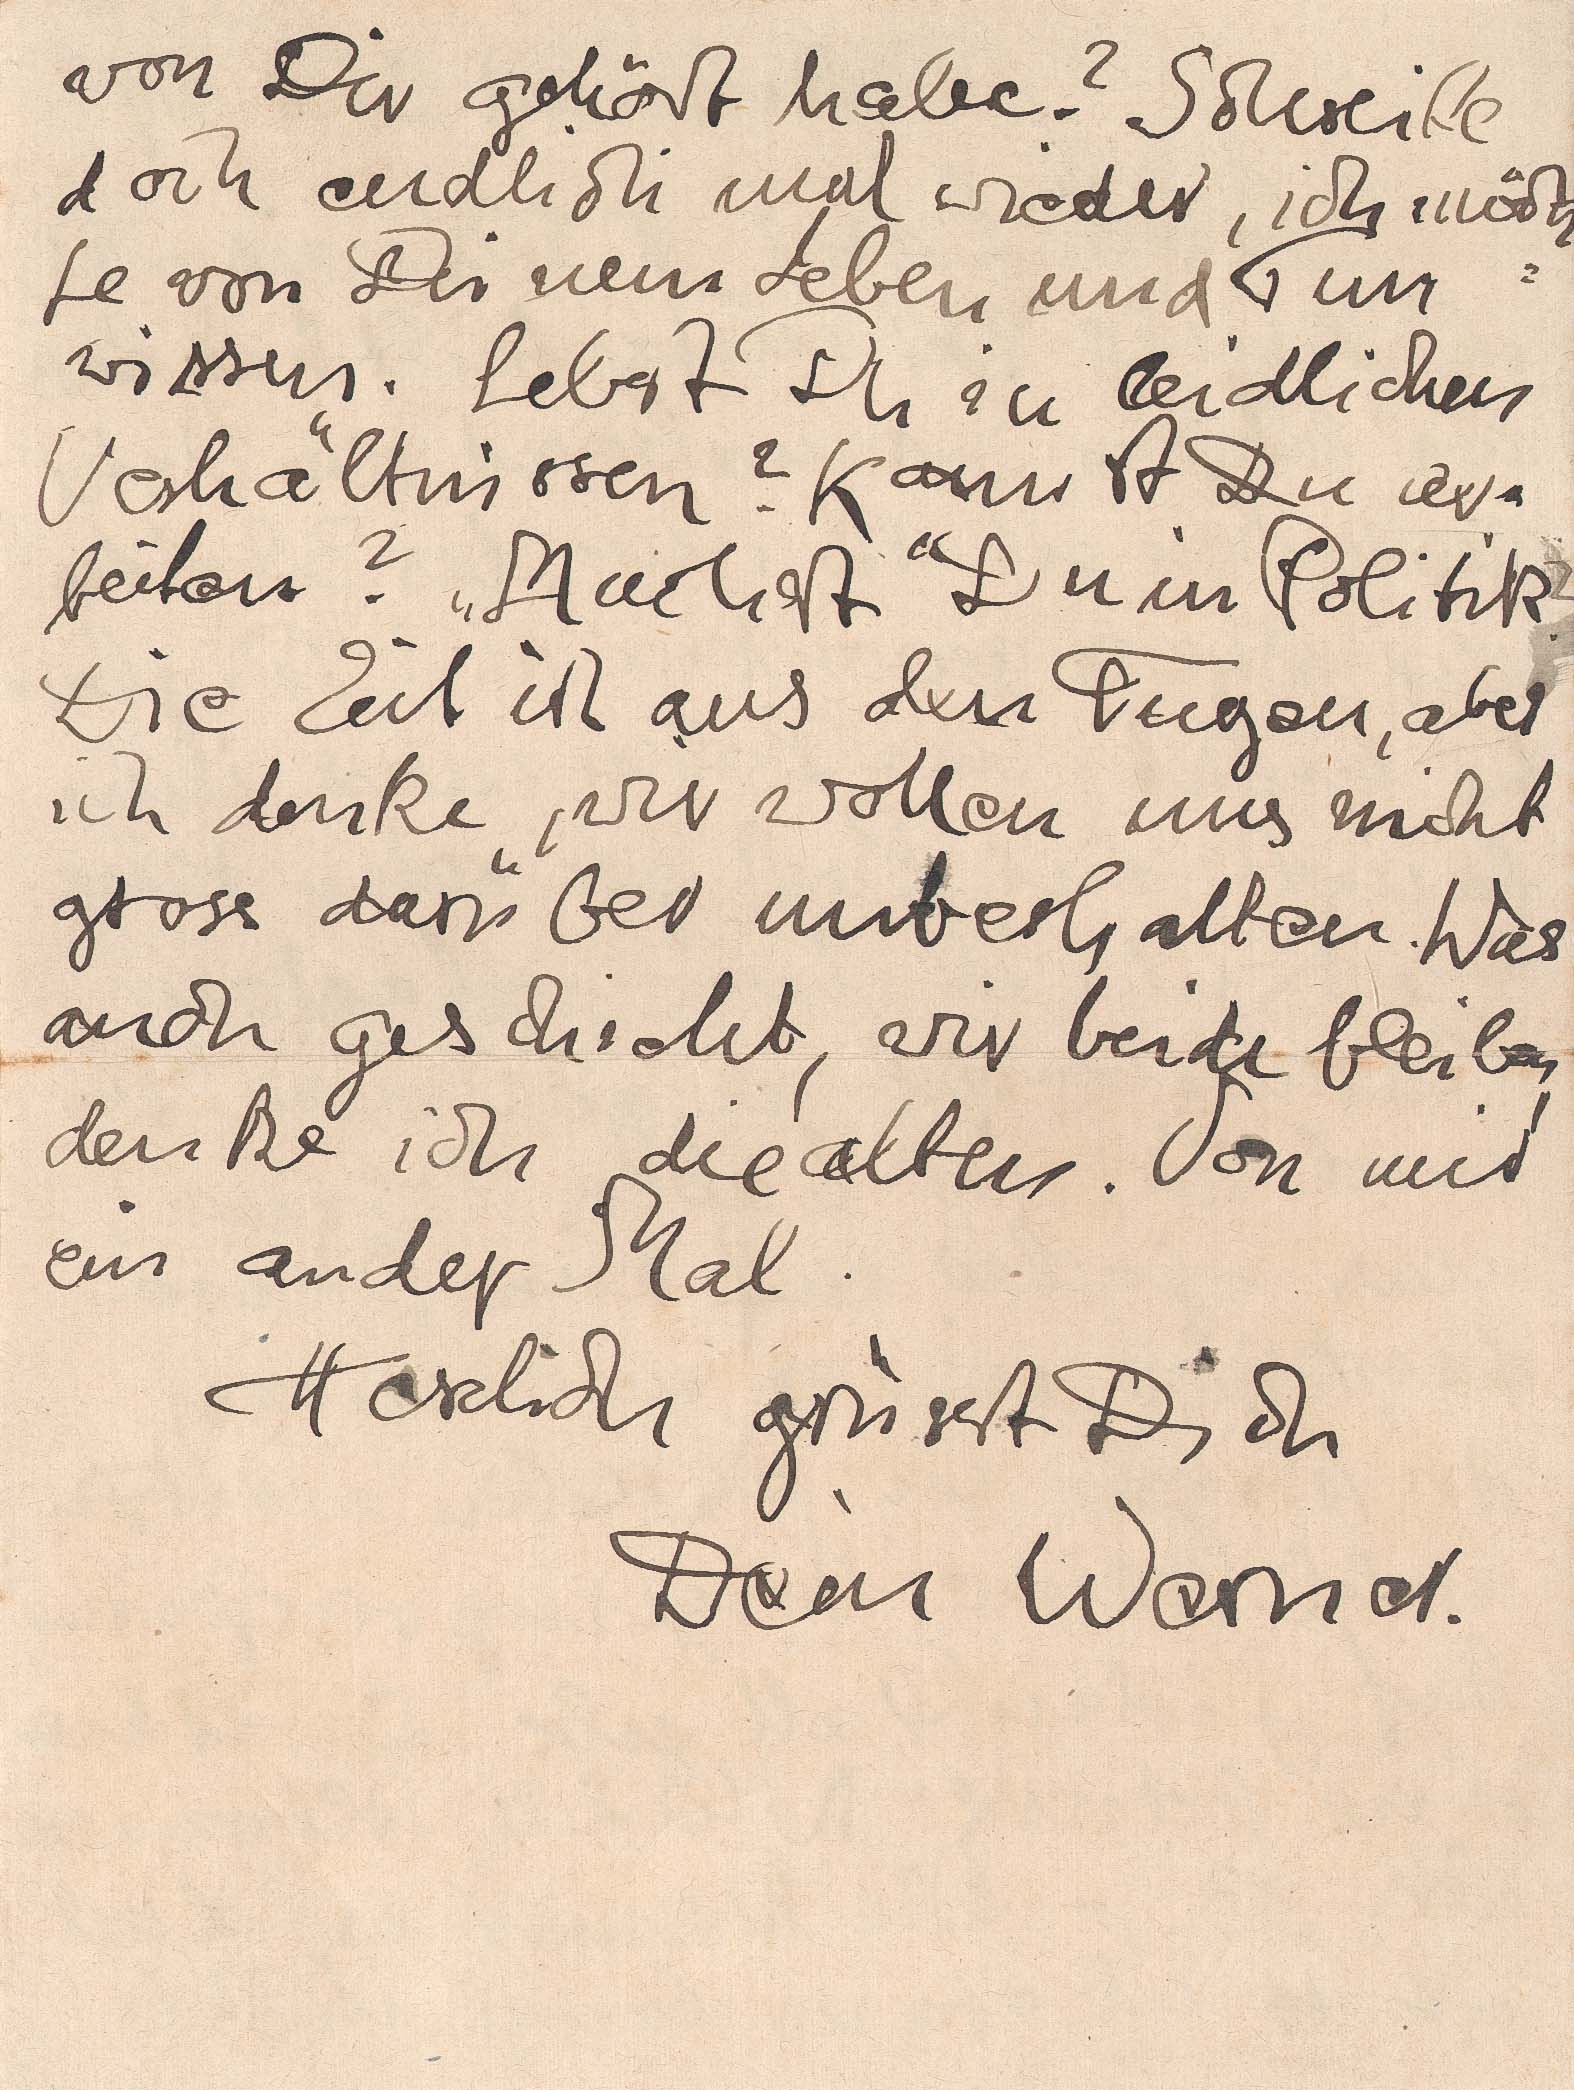 von Dir gehört habe? Schreibe
doch endlich mal wieder, ich möch
te von Deinem Leben und Tun
wissen. Lebst Du in leidlichen
Verhältnissen? Kannst Du ar-
beiten? „Machst“ Du in Politik?
Die Zeit ist aus den Fugen, aber
ich denke, wir wollen uns nicht
gross darüber unterhalten. Was
auch geschieht, wir beide bleiben
denke ich die alten. Von mir
ein ander Mal.
Herzlich grüsst Dich
Dein Werner.